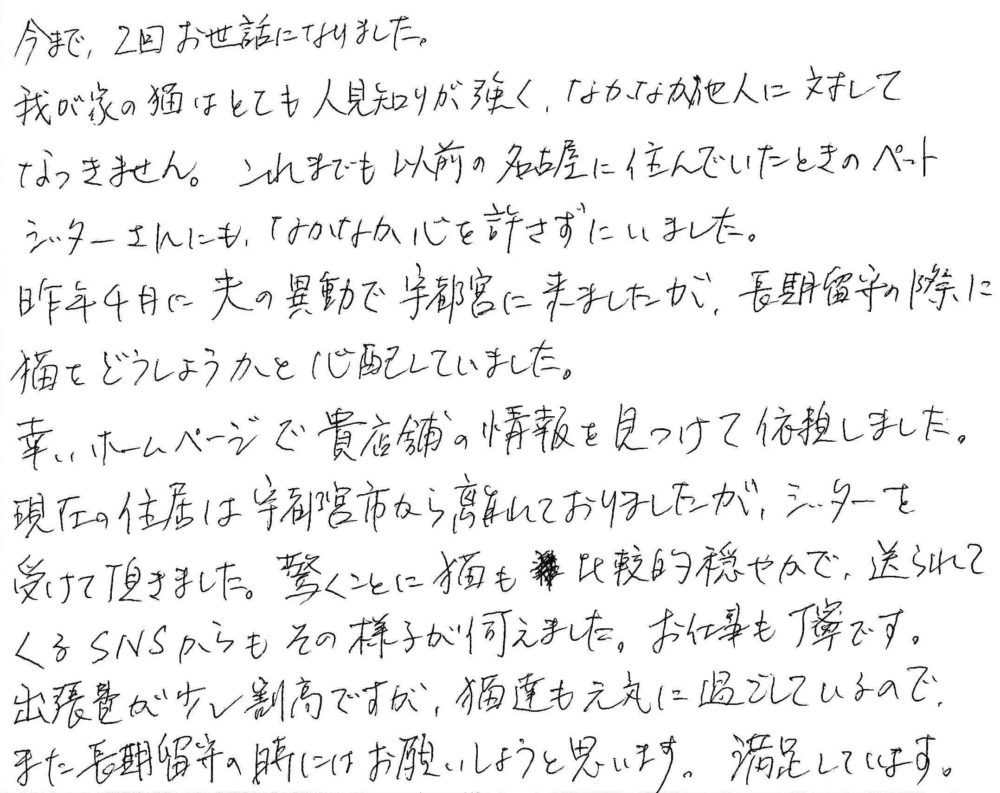 今まで、2回お世話になりました。
我が家の猫はとても人見知りが強く、なかなか他人に対して
なつきません。これまでも以前の名古屋に住んでいたときのペット
シッターさんにも、なかなか心を許さずにいました。
昨年4月に夫の異動で宇都宮に来ましたが、長期留守の際に
猫をどうしようかと心配していました。
幸いホームページで貴店舗の情報を見つけて依頼しました。
現在の住居は宇都宮市から離れておりましたが、シッターを
受けて頂きました。驚くことに猫も比較的穏やかで、送られて
くるSNSからもその様子が伺えました。お仕事も丁寧です。
出張費が少し割高ですが、猫達も元気に過ごしているので、
また長期留守の時にはお願いしようと思います。満足しています。